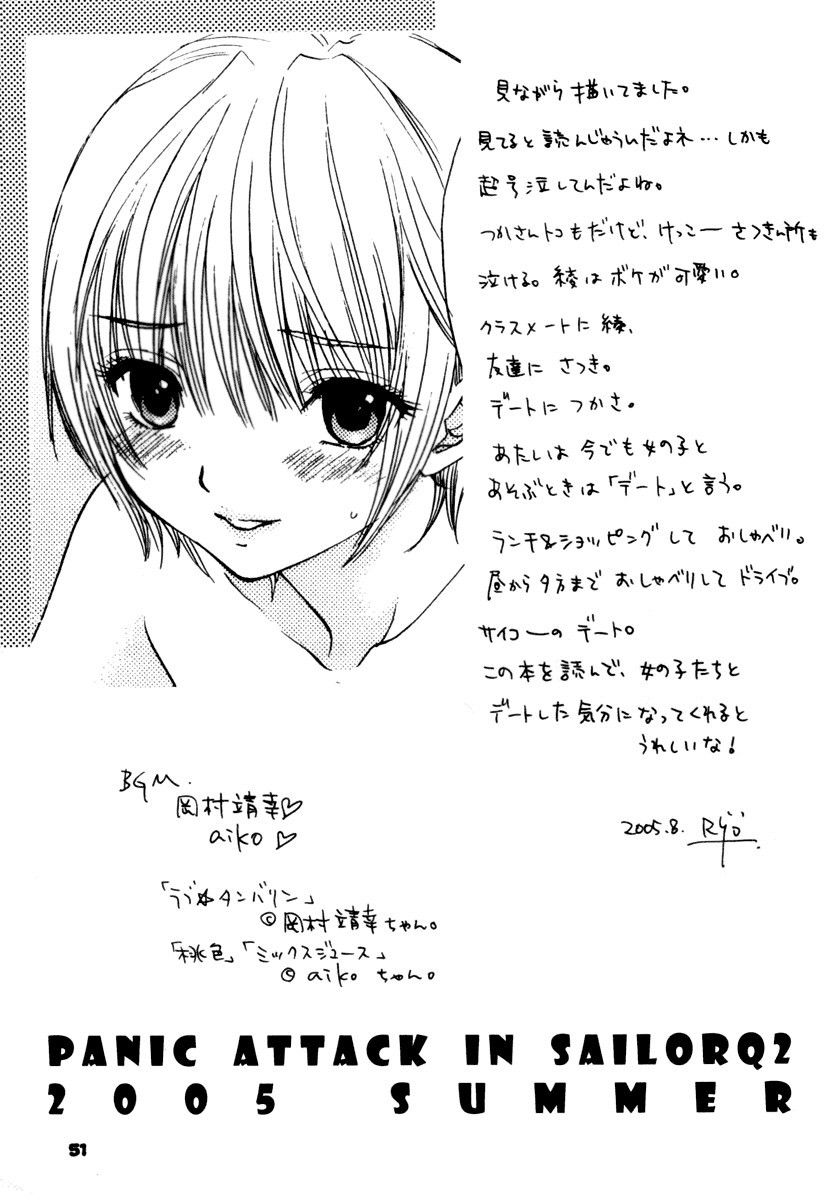 見ながら描いてました。
見てると読んじゃうんだよネ…しかも
超号泣してんだよね。
つかさんトコもだけど、けっこー さつきん所も
泣ける。綾はボケが可愛い。
クラスメートに綾、
友達に さつき。
デートに つかさ。
あたいは 今でも女の子と
あそぶときは「デート」と言う。
ランチ&ショッピングして おしゃべり。
昼から夕方まで おしゃべりして ドライブ。
サイコーの デート。
この本を読んで、女の子たちと
デートした気分になってくれると
うれしいな!
2005.8. Ryo
BGM.
岡村靖幸♡
aiko♡
「ラブ タンバリン」
©岡村靖幸ちゃん。
「桃色」「ミックスジュース」
© aiko ちゃん。
PANIC ATTACK IN SAILORQ2
2005 SUMMER
51